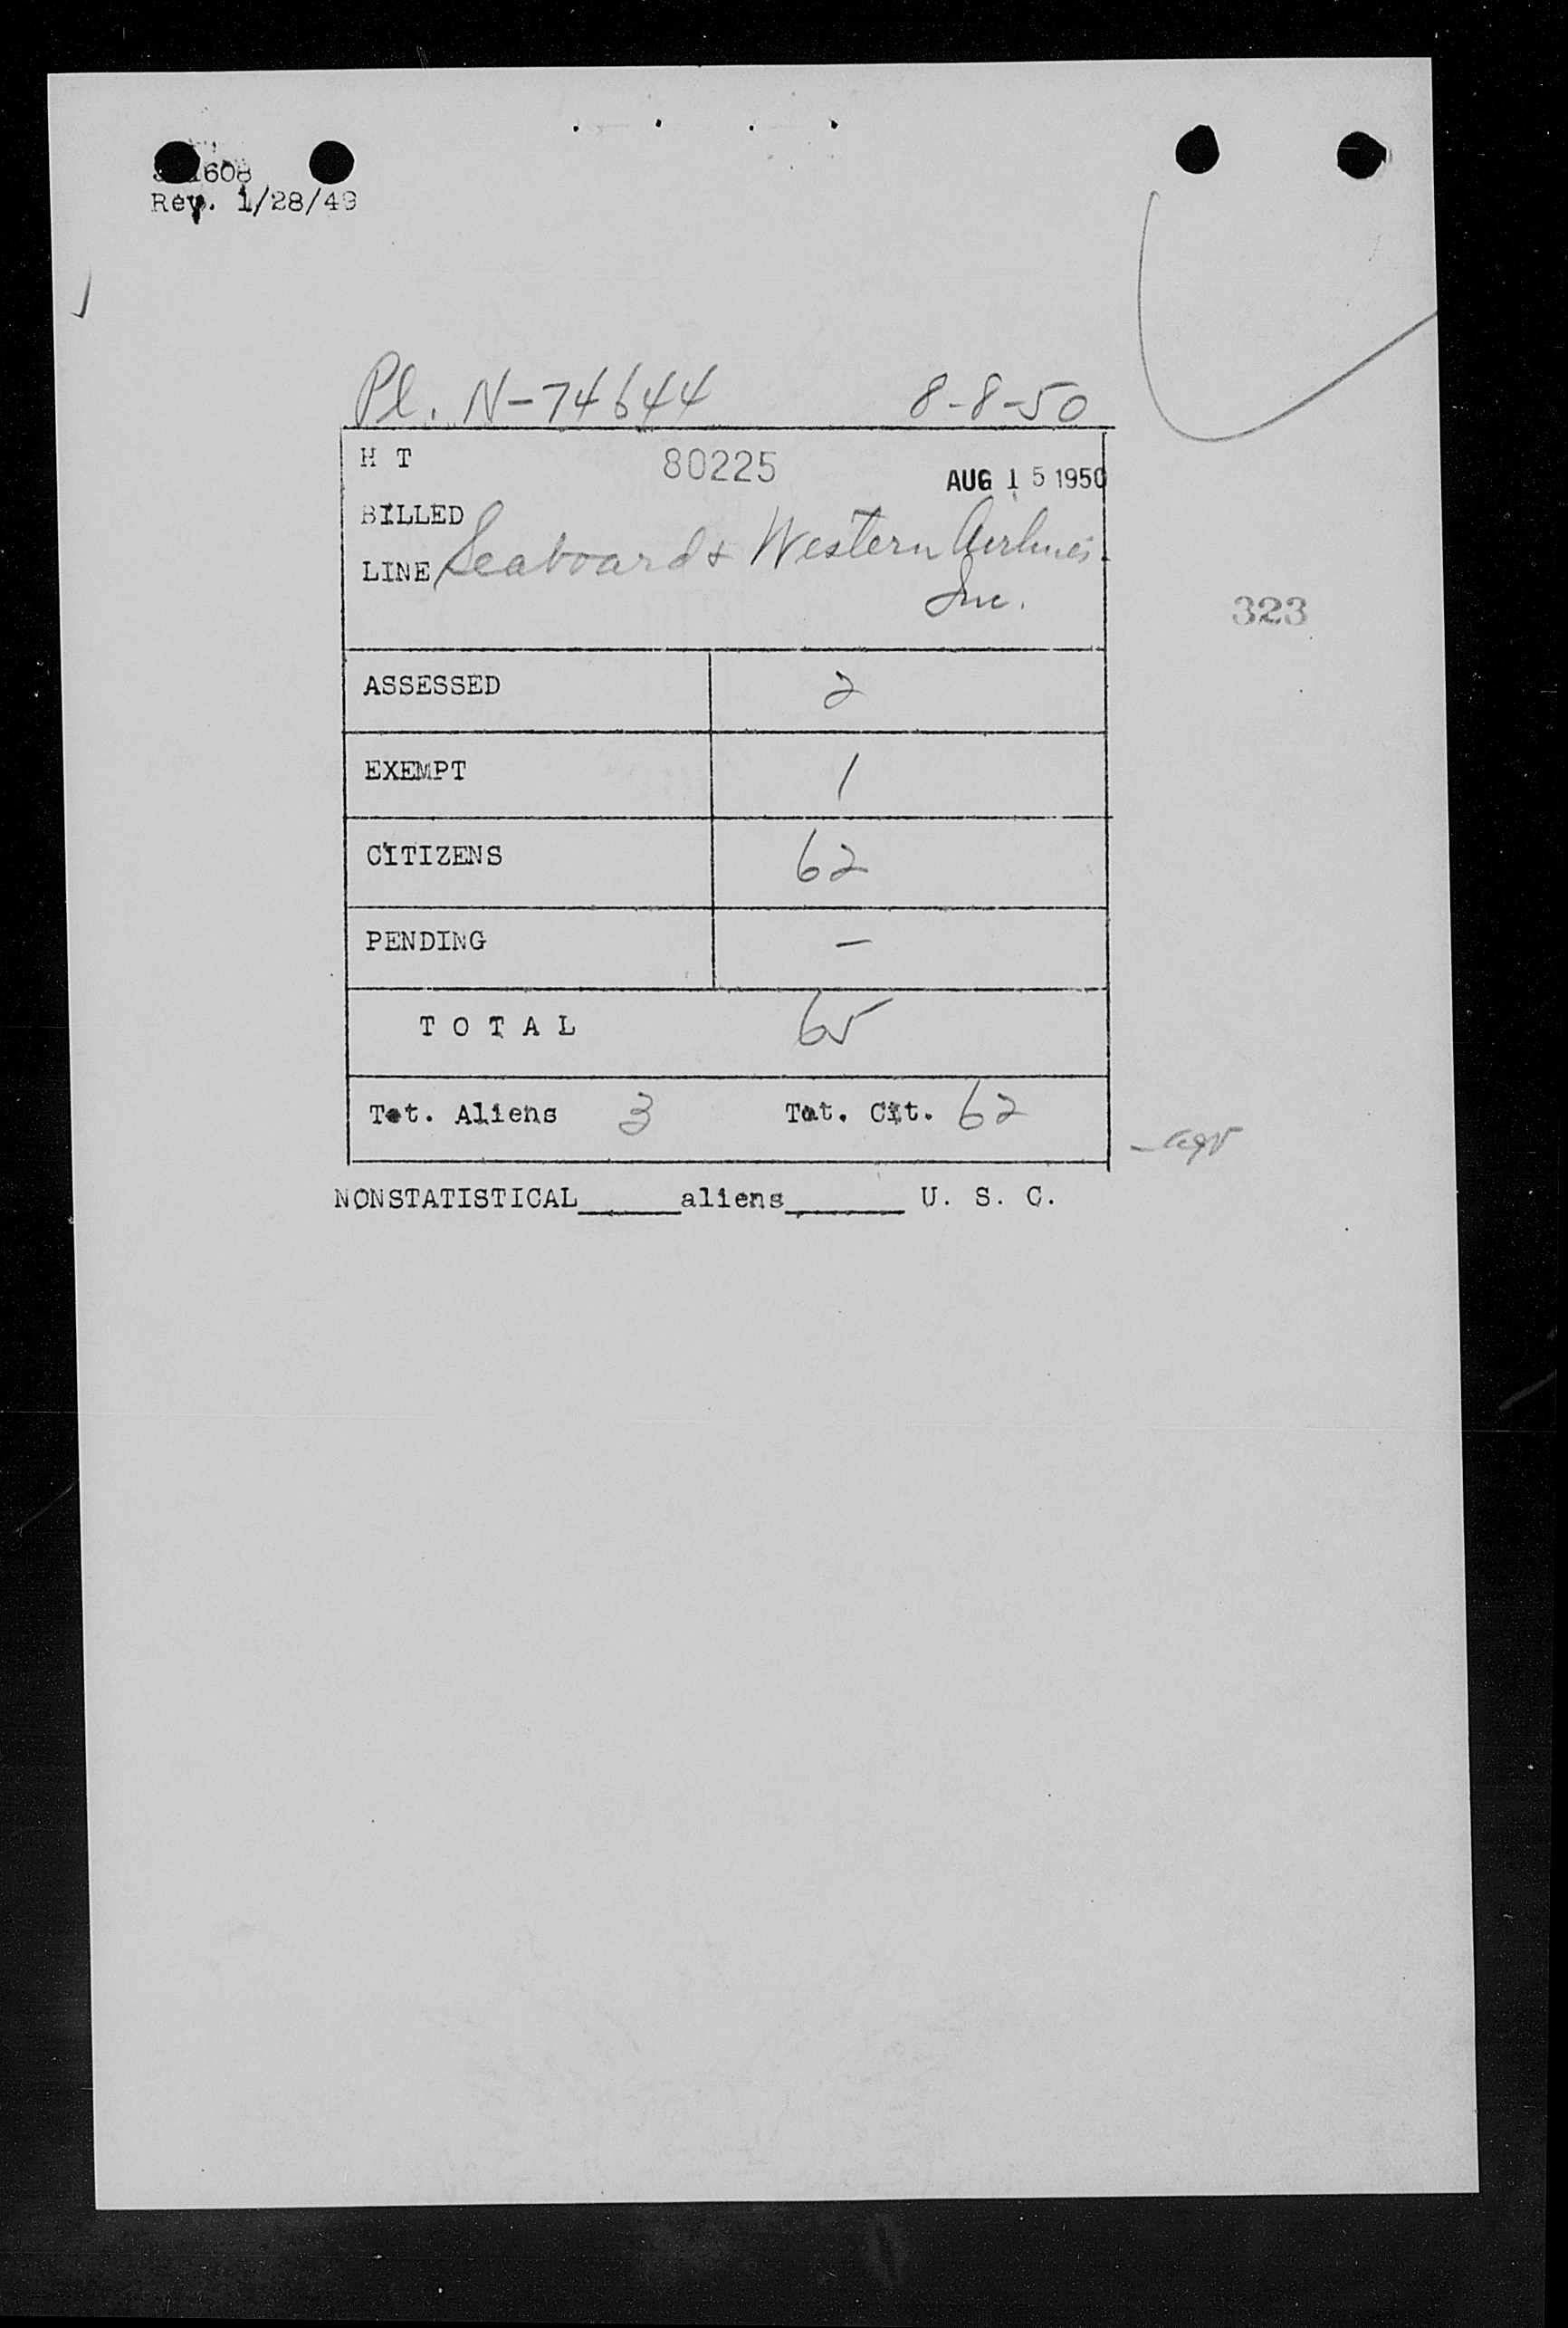 1608
Rev. 1/28/49
Pl. N-74644 8-8-50
H T 80225 AUG 15 1950
BILLED
LINE Seaboard & Western Airlines
Inc.
323
ASSESSED 2
EXEMPT 1
CITIZENS 62
PENDING —
TOTAL 65
Tot. Aliens 3 Tot. Cit. 62
NONSTATISTICAL_____aliens______ U. S. C.